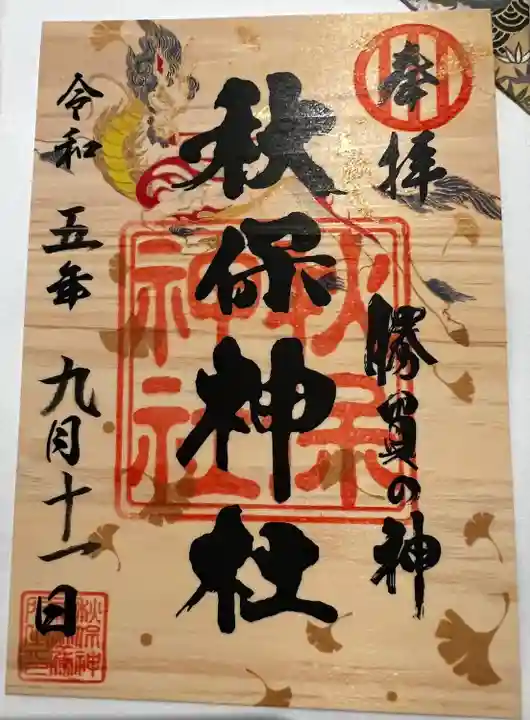 奉拝
勝負の神
秋保神社
秋保
神社
令和五年九月十一日
秋保神